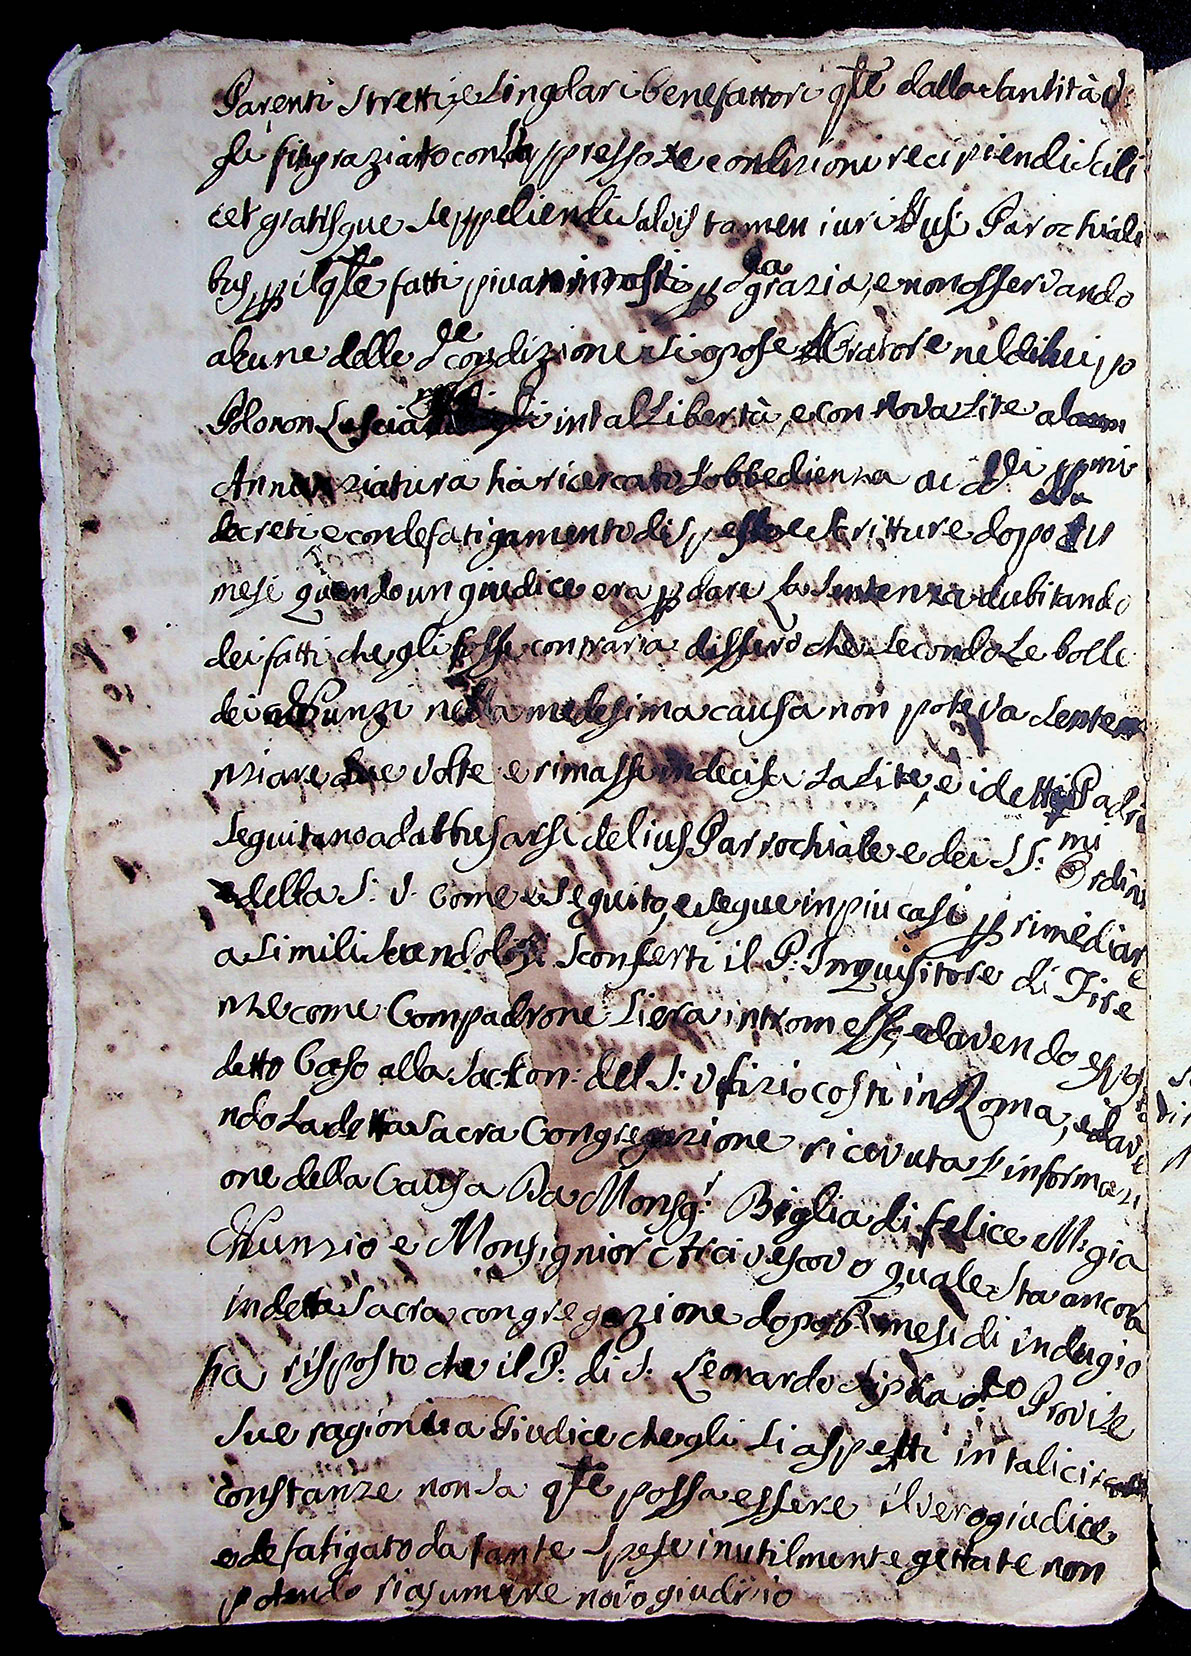 Parenti stretti, e singolari benefattori qle dalla santità di
gli fu graziatto con la presso te condizioni recipiendi scili
cet gratisque seppeliendi salvis tamen iuribusi Parochiali
bus pp il qle fatti più animosti p da grazia, e non osservando
alcune delle de condizioni si opose l'Oratore nel di lui po
Polo non lascia in tal Libertà, e con nova Lite a
Annunziatura ha ricercato l'obbedienza ai ddi ppmi
decreti e con defatigamento di spese e scritture dopo
mesi quando un giudice era p dare la sentenza dubitando
dei fatti che gli fosse contraria disserò che secondo le bolle
dei Nunzi nella medesima causa non poteva senten
nziare due volte e rimasse indecisa la Lite, e i detti Padri
seguitano ad abbusarsi del ius Parrochiale e dei SS:mi Ordini
e della S: V. Come è seguito, e segue in piu casi p rimediare
a simili scandolosi sconserti il P: Inquisitore di Fire
nze come Compadrone si era intromesso, ed avendo espos
detto Caso alla Sac: Con: del S: Ufizio costi in Roma, ed ave
ndo la detta Sacra Congregazione ricevuta l'informazi
one della Causa Da Monsgr: Biglia di felice M: già
Nunzio e Monsignior Arcivescovo quale sta ancora
in detta Sacra congregazione dopo mesi di indugio
ha risposto che il P: di S: Leonardo dto Provi le
sue ragioni a Giudice che gli si aspetti in tali cir
constanze non sa qle possa essere il vero giudice
e defatigato da tante spese inutilmente gettate non
potendo riasumere novo giudizio